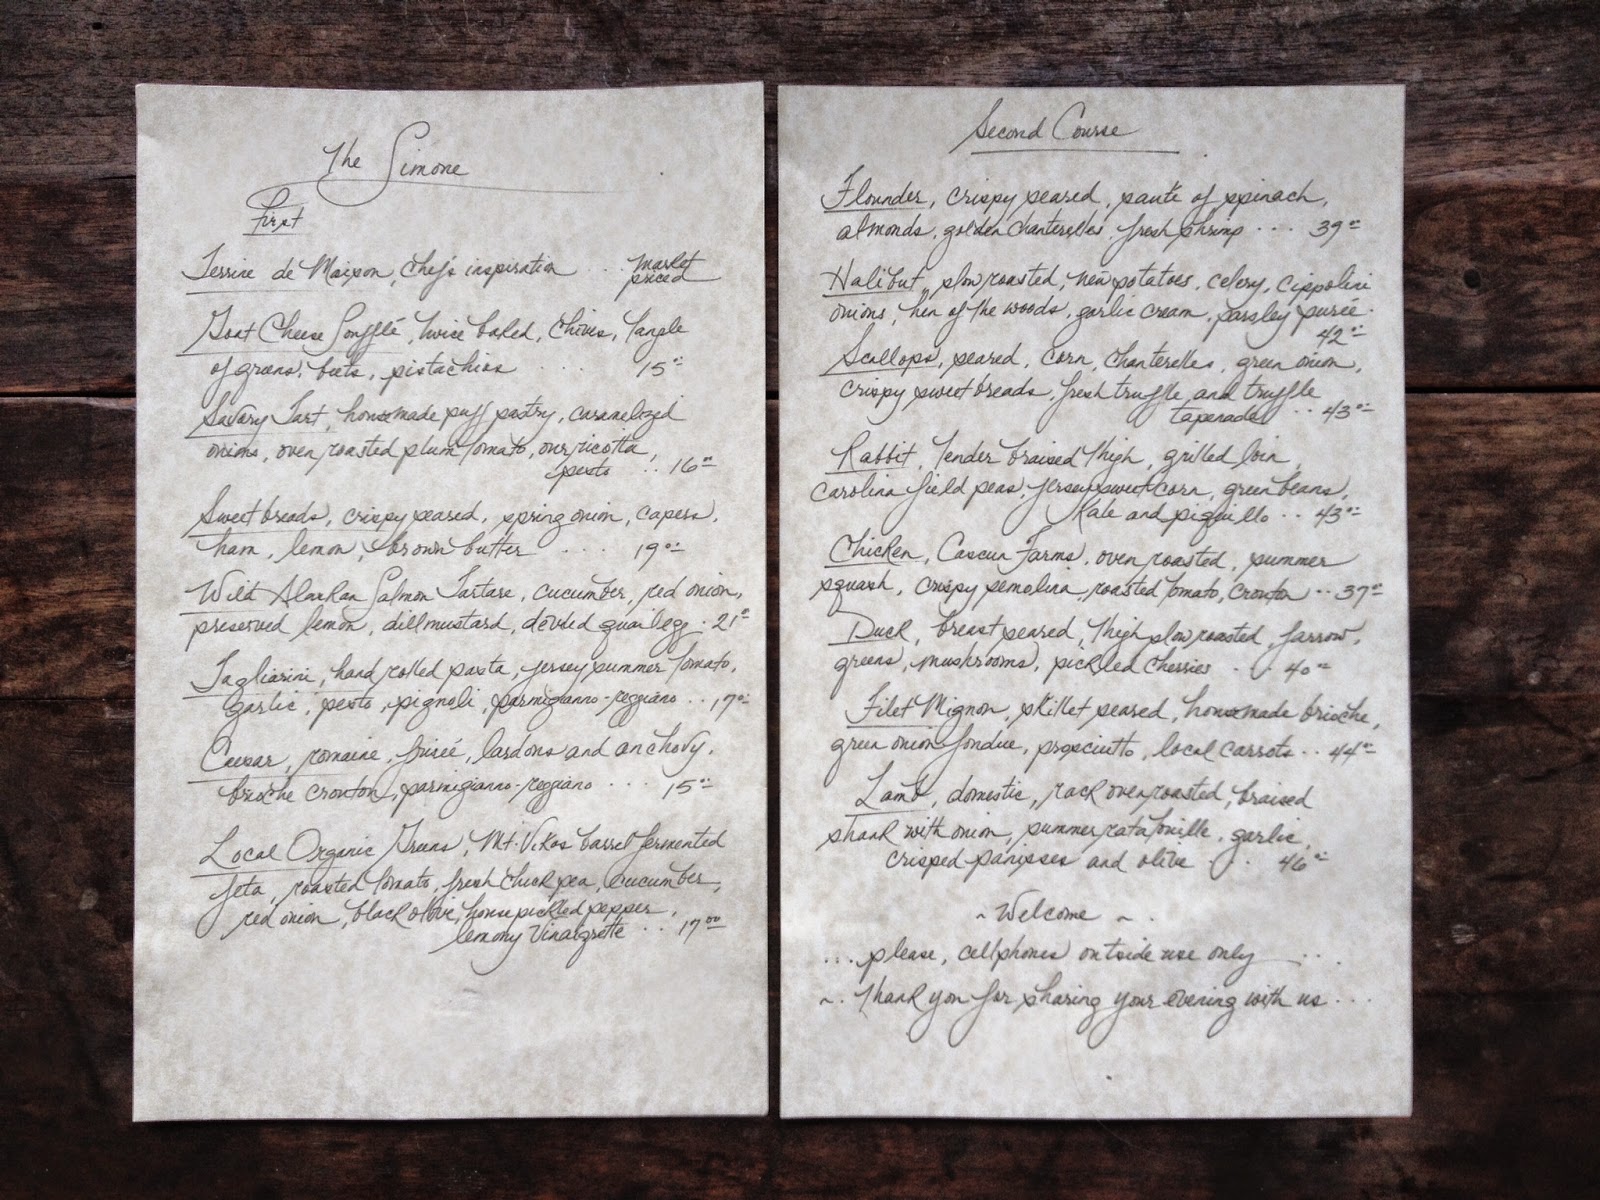 The Simone
First
Terrine de Maison, chef's inspiration ... market
priced
Goat Cheese Soufflé, twice baked, chives, tangle
of greens, beets, pistachios .... 15.00
Savory Tart, homemade puff pastry, caramelized
onions, oven roasted plum tomato, our ricotta,
pesto .. 16.00
Sweetbreads, crispy seared, spring onion, capers,
ham, lemon, brown butter .... 19.00
Wild Alaskan Salmon Tartare, cucumber, red onion,
preserved lemon, dill mustard, deviled quail egg . 21.00
Tagliarini, hand rolled pasta, jersey summer tomato,
garlic, pesto, pignoli, parmigianno-reggiano .. 17.00
Caesar, romaine, frisée, lardons and anchovy,
brioche crouton, parmigianno-reggiano ... 15.00
Local Organic Greens, Mt. Vikos barrel fermented
feta, roasted tomato, fresh chick pea, cucumber,
red onion, black olive, house pickled pepper,
lemony Vinaigrette .. 17.00
Second Course
Flounder, crispy seared, sauté of spinach,
almonds, golden chanterelles, fresh shrimp ... 39.00
Halibut, slow roasted, new potatoes, celery, cippoline
onions, hen of the woods, garlic cream, parsley purée.
42.00
Scallops, seared, corn, chanterelles, green onion,
crispy sweetbreads, fresh truffle and truffle
tapenade .. 43.00
Rabbit, tender braised thigh, grilled loin,
Carolina field peas, jersey sweet corn, green beans,
kale and piquillo .. 43.00
Chicken, Farms, oven roasted, summer
squash, crispy semolina, roasted tomato, crouton .. 37.00
Duck, breast seared, thigh slow roasted, farrow,
greens, mushrooms, pickled cherries . . . 40.00
Filet Mignon, skillet seared, homemade brioche,
green onion fondue, prosciutto, local carrots .. 44.00
Lamb, domestic, rack oven roasted, braised
shank with onion, summer ratatouille, garlic,
crisped panisses and olive . . 46.00
~ Welcome ~ .
... please, cellphones outside use only ...
~. Thank you for sharing your evening with us ...